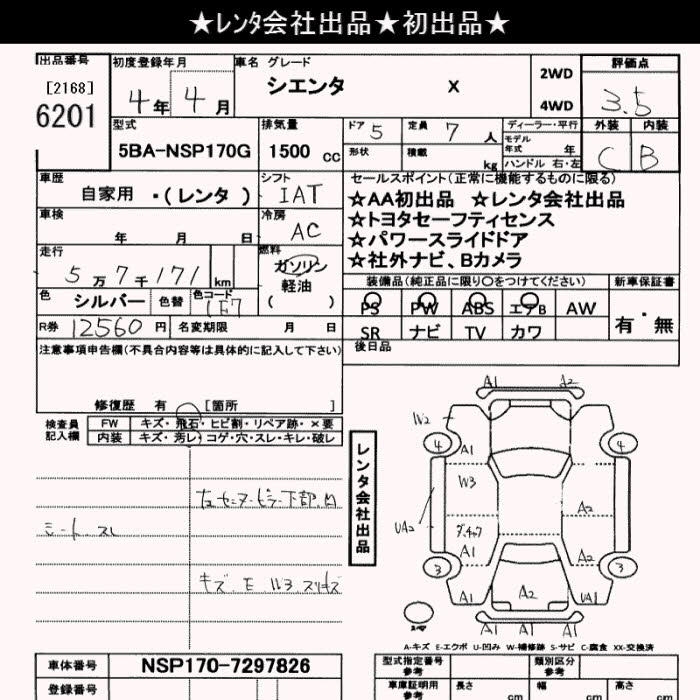 ★レンタ会社出品★初出品★
出品番号
[2168]
6201
初度登録年月
4年 4月
車名 グレード
シエンタ X
2WD
4WD
評価点
3.5
外装 内装
C B
型式
5BA-NSP170G
排気量
1500 cc
ドア 5
形状
定員 7 人
積載 kg
ディーラー・平行
モデル年式 年
ハンドル 右・左
車歴
自家用 ・(レンタ )
シフト
IAT
車検
年 月 日
冷房
AC
走行
5万7千171 km
燃料
ガソリン
軽油
( )
色 シルバー 色替
色コード
1F7
R券 12560 円 名変期限 月 日
セールスポイント(正常に機能するものに限る)
☆AA初出品 ☆レンタ会社出品
☆トヨタセーフティセンス
☆パワースライドドア
☆社外ナビ、Bカメラ
装備品(純正品に限り○をつけてください)
PS PW ABS エアB AW
SR ナビ TV カワ
新車保証書
有・無
後日品
注意事項申告欄(不具合内容等は具体的に記入して下さい)
修復歴 有 [箇所 ]
検査員
記入欄
FW キズ・飛石・ヒビ割・リペア跡・×要
内装 キズ・汚レ・コゲ・穴・スレ・キレ・破レ
シート スレ
左センターピラー下部凹
キズ E W3 スリキズ
レンタ会社出品
A1 A2
W2
4 4
A1
W3
UA2
A2
A1
A2
3 3
A2
A1 UA1
A1 A1
A-キズ E-エクボ U-凹み W-補修跡 S-サビ C-腐食 XX-交換済
車体番号 NSP170-7297826
登録番号
型式指定番号
参考
類別区分
参考
車庫証明用
参考
長さ cm 幅 cm 高さ cm